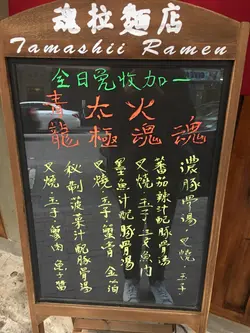 魂拉麵店
Tamashii Ramen
全日免收加一
魂
火魂
太極
青龍
濃豚骨湯、叉燒、玉子
蕃茄辣汁配豚骨湯
叉燒、玉子、魚肉
墨魚汁配豚骨湯
叉燒、玉子、蟹膏、金箔
秘制菠菜汁配豚骨湯
叉燒、玉子、蟹肉、魚子醬